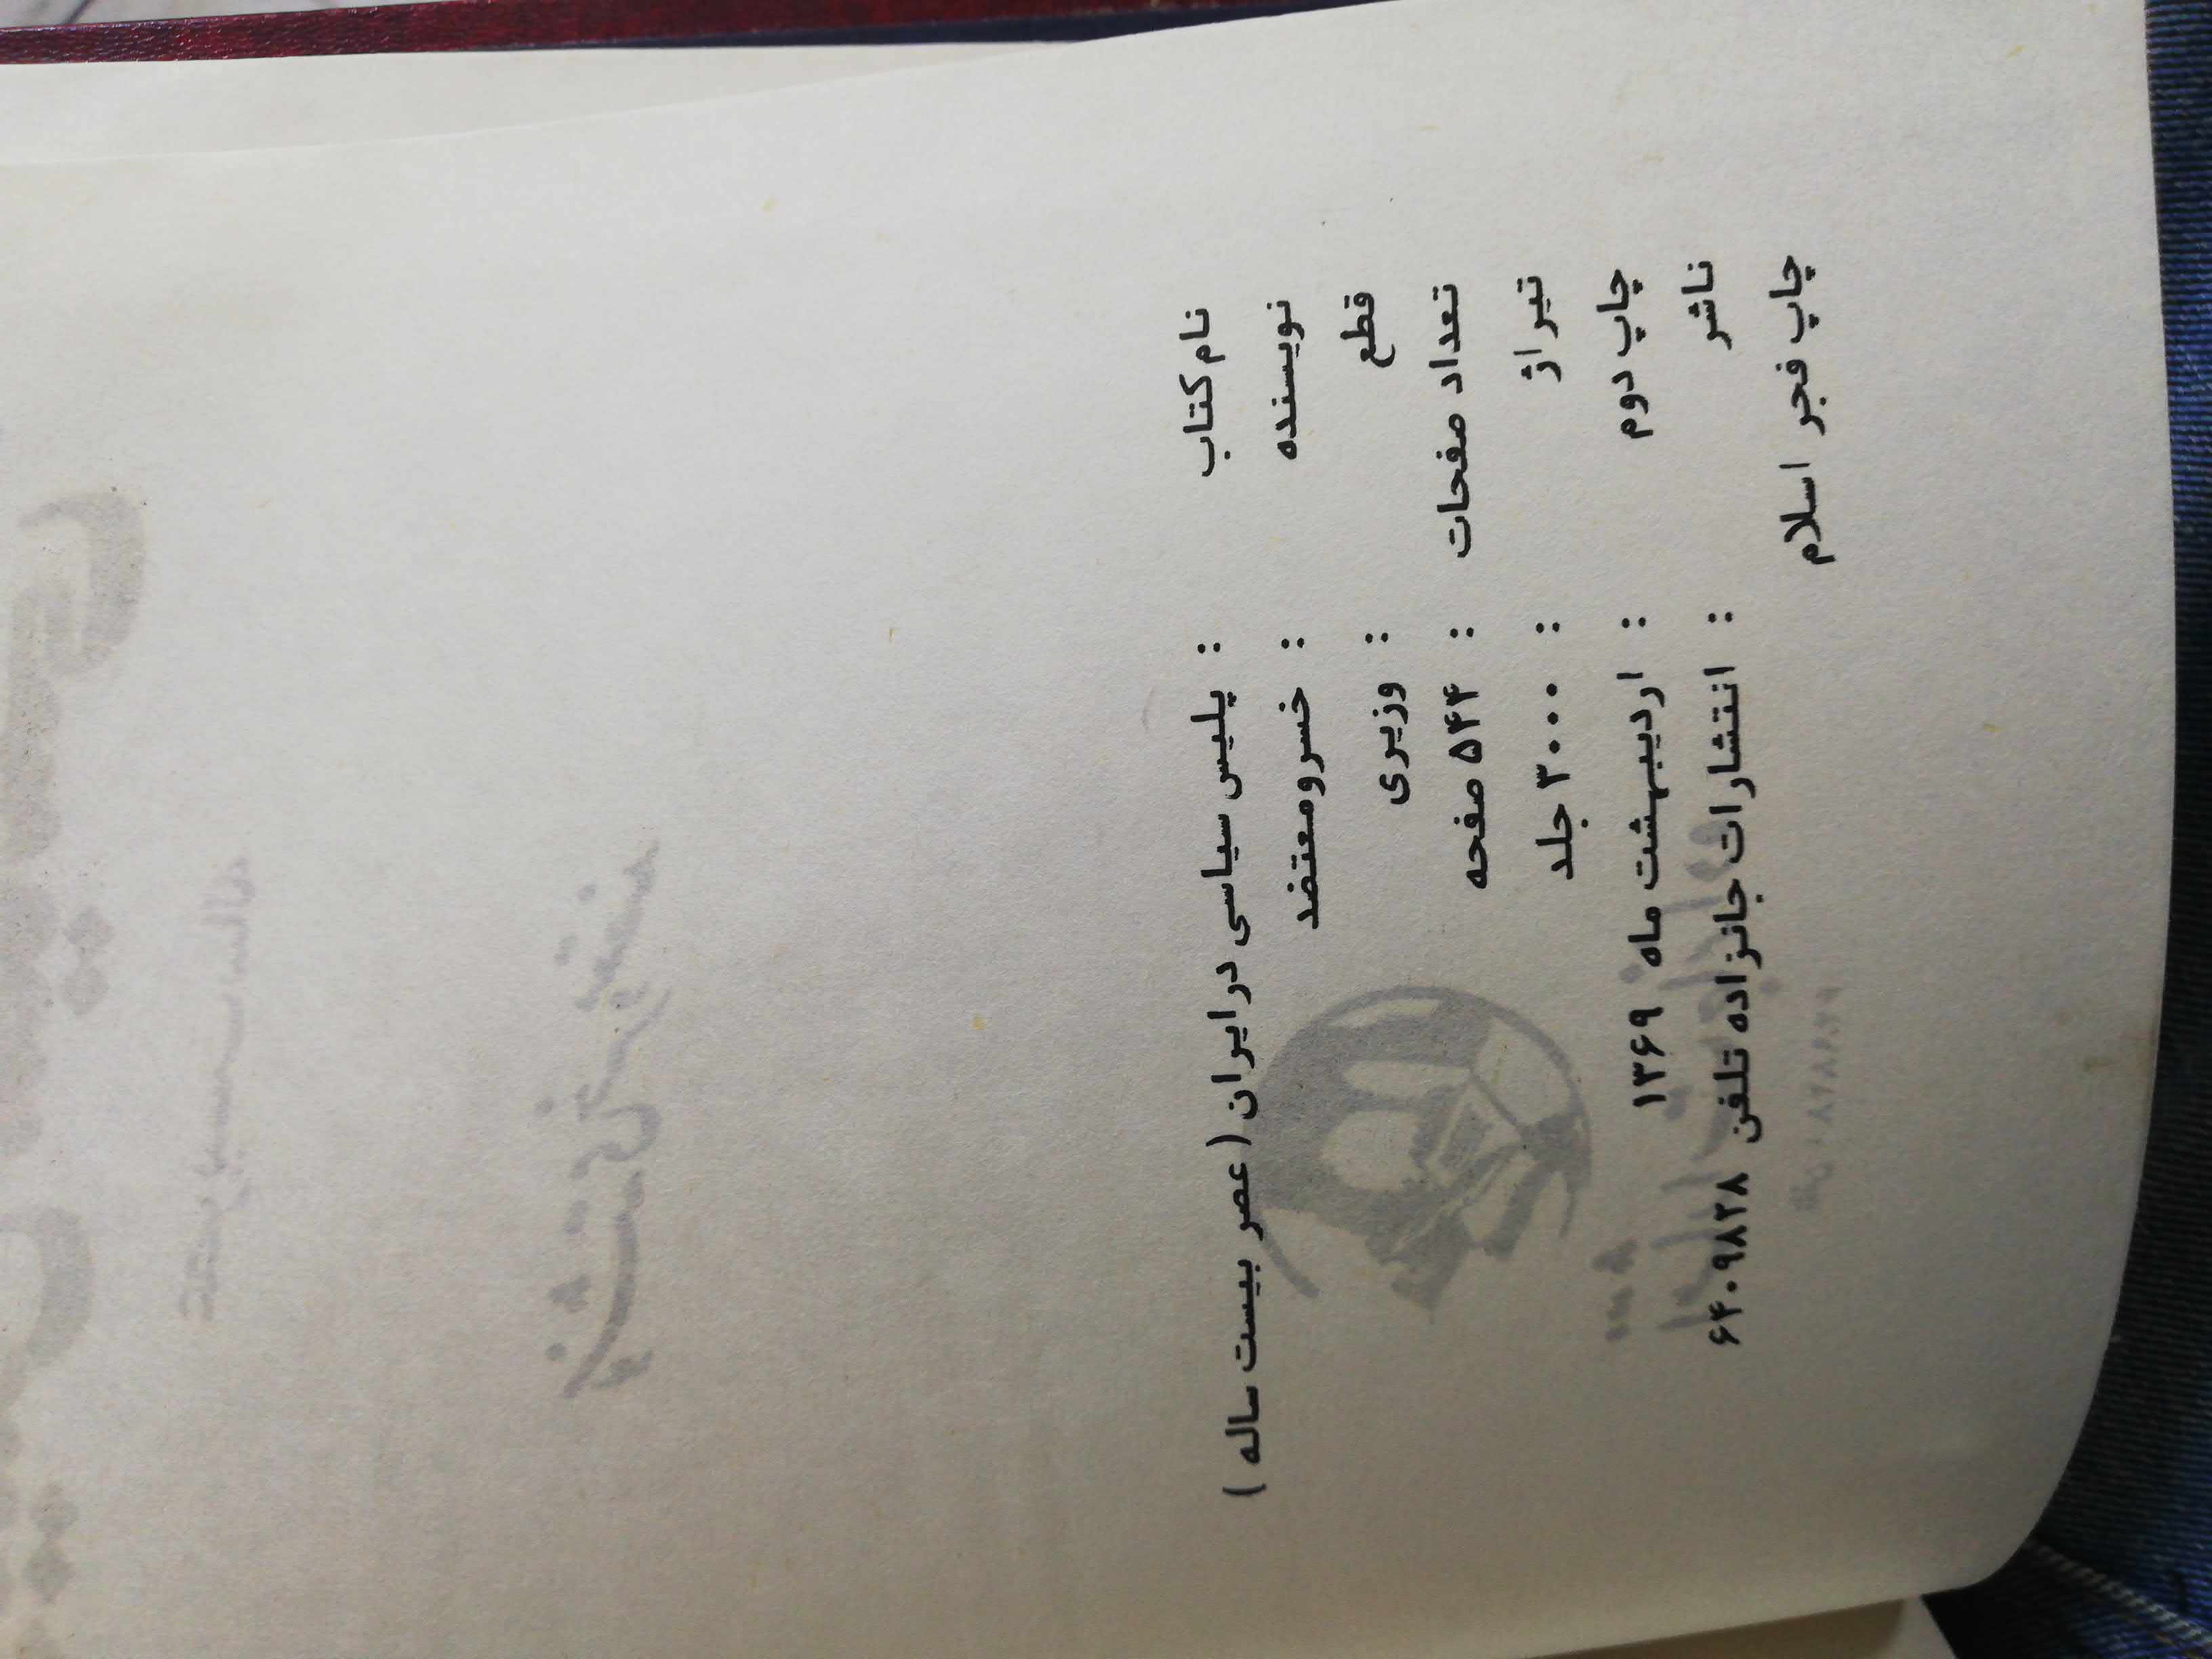 نام کتاب : پلیس سیاسی در ایران (عصر بیست ساله)
نویسنده : خسرو معتضد
قطع : وزیری
تعداد صفحات : ۵۴۴ صفحه
تیراژ : ۳۰۰۰ جلد
چاپ دوم : اردیبهشت ماه ۱۳۶۹
ناشر : انتشارات جانزاده تلفن ۶۴۰۹۸۲۸
چاپ فجر اسلام